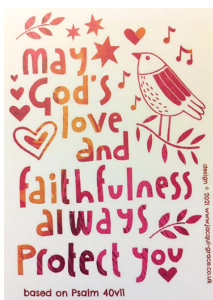 may
God's
love
and
faithfulness
always
Protect you
based on Psalm 40v11
design © 2021 www.jacqui-grace.co.uk